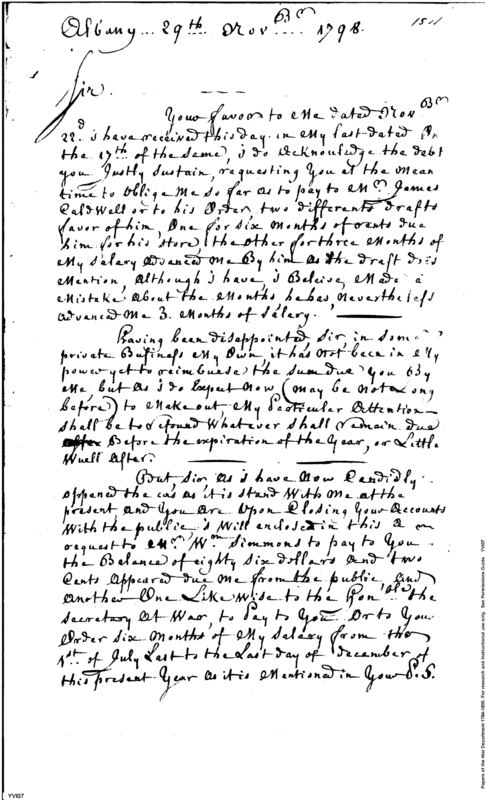 Albany... 29th Nov.... ber 1798.
1501
Sir.
Your favor to Me dated Nov ber
22d i have received this day. in My last dated On
the 17th of the same, i do Acknowledge the debt
you Justly Sustain, requesting You at the Mean
time to Oblige Me so far as to pay to Mr James
CaldWell or to his Order, two differents drafts
favor of him, One for six Months of rents due
him for his store, the other for three Months of
My salary advanced Me By him as the draft
Mention, Although i have, i Beleive, Made a
Mistake About the Months he has, Nevertheless
advanced Me 3. Months of Salary.
Having been disappointed, Sir, in Some
private Business My Own, it has Not been in My
power yet to reimburse the sum due You By
Me, but As i do Expect Now (may be not long
before) to Make out, My Particular Attention
shall be to refound Whatever shall remain due
Before the expiration of the Year, or Little
Wuell After.
But, Sir, As i have Now Candidly
oppened the cas as it is stand With Me at the
present and You Are Upon Closing Your Accounts
With the public i Will enclosed in this a
request to Mr Wm Simmons to pay to You
the Balance of eighty six dollars and two
Cents Appeared due Me from the public, and
Another One LikeWise to the Honble the
Secretary At War, to Pay to You Or to Your
Order six Months of My Salary from the
1st of July Last to the Last day of december of
this present Year As it is Mentioned in Your P.S.
YVI07
Papers of the War Department 1784-1800. For research and instructional use only. See Permissions Guide. YVI07